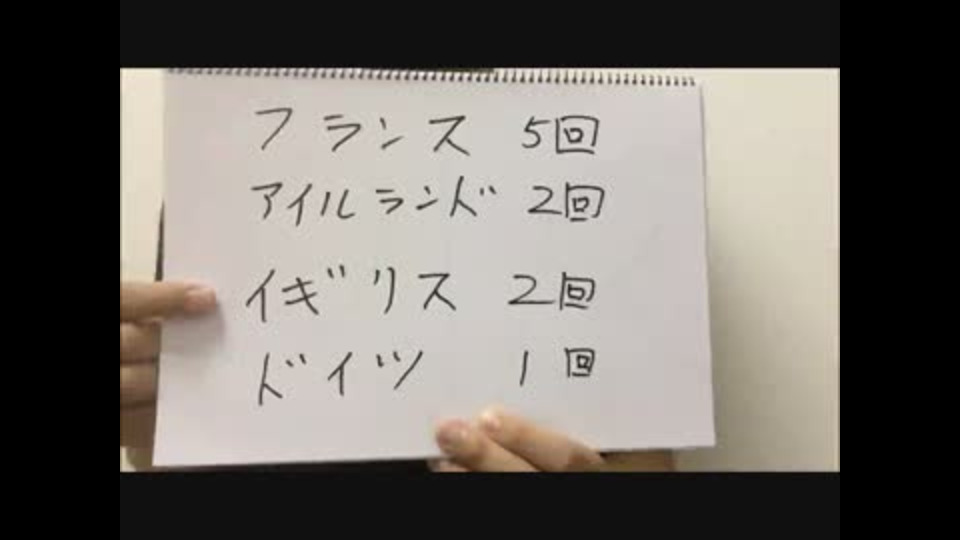 フランス 5回
アイルランド 2回
イギリス 2回
ドイツ 1回